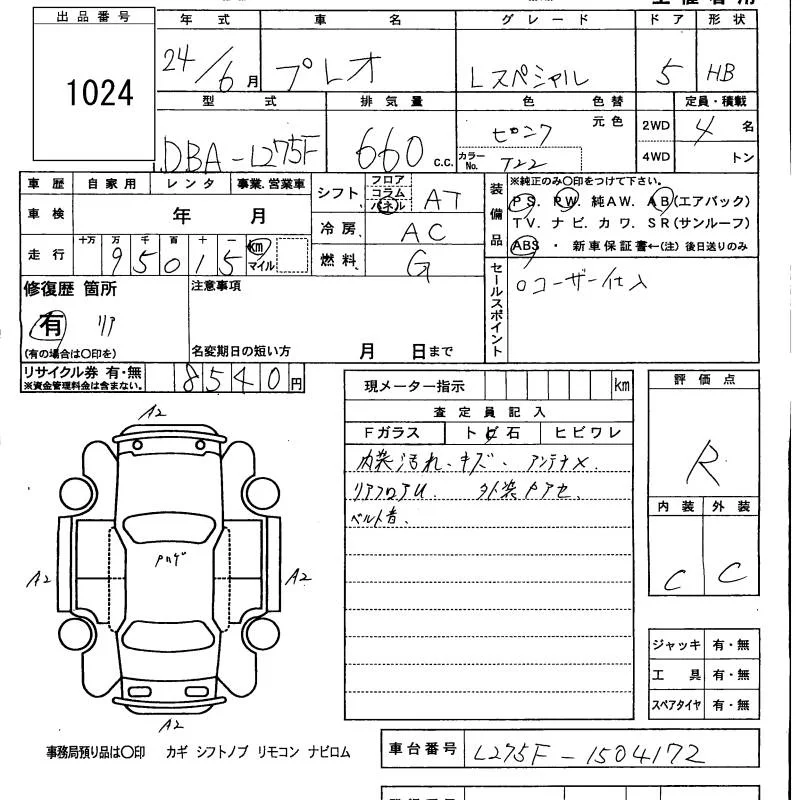 出品番号
1024
年式 車名 グレード ドア 形状
24/6月 プレオ Lスペシャル 5 HB
型式 排気量 色 色替 定員・積載
DBA-L275F 660 c.c. ピンク 元色 2WD 4名
カラーNo. T22 4WD トン
車歴 自家用 レンタ 事業.営業車
車検 年 月
走行 十万 万 千 百 十 一 km マイル
95015
シフト フロア コラム パネル AT
冷房 AC
燃料 G
装備品
※純正のみ○印をつけて下さい。
PS. PW. 純AW. AB(エアバック)
TV. ナビ. カワ. SR(サンルーフ)
ABS ・ 新車保証書←(注) 後日送りのみ
セールスポイント
○ユーザー仕入
修復歴 箇所
有 リア
(有の場合は○印を)
注意事項
名変期日の短い方 月 日まで
リサイクル券 有・無
※資金管理料金は含まない。
8540円
現メーター指示 km
査定員記入
Fガラス トビ石 ヒビワレ
内装汚れ、キズ、アンテナX
リアフロアU 外装Pアセ
ベルト音、
評価点
R
内装 外装
C C
ジャッキ 有・無
工具 有・無
スペアタイヤ 有・無
A2
Pハゲ
A2 A2
A2
事務局預り品は○印 カギ シフトノブ リモコン ナビロム
車台番号 L275F-1504172